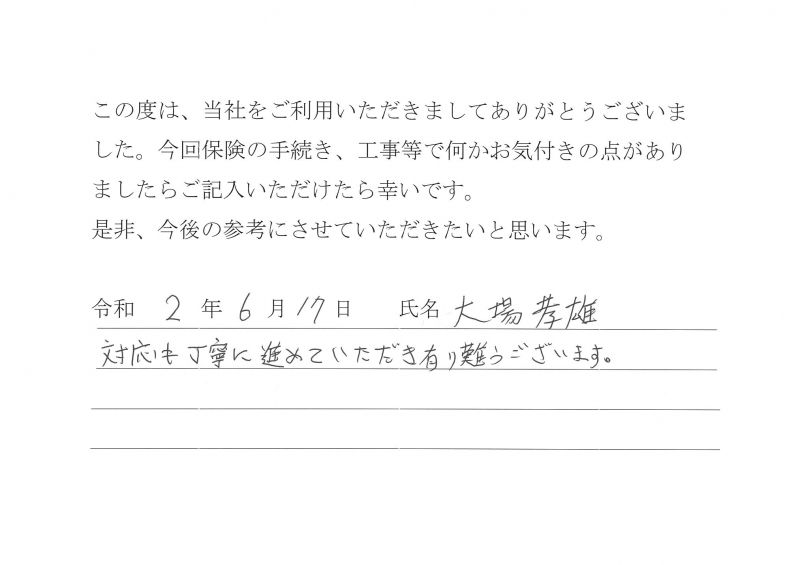 この度は、当社をご利用いただきましてありがとうございま
した。今回保険の手続き、工事等で何かお気付きの点があり
ましたらご記入いただけたら幸いです。
是非、今後の参考にさせていただきたいと思います。
令和 2 年 6 月 17 日 氏名 大場孝雄
対応も丁寧に進めていただき有り難うございます。